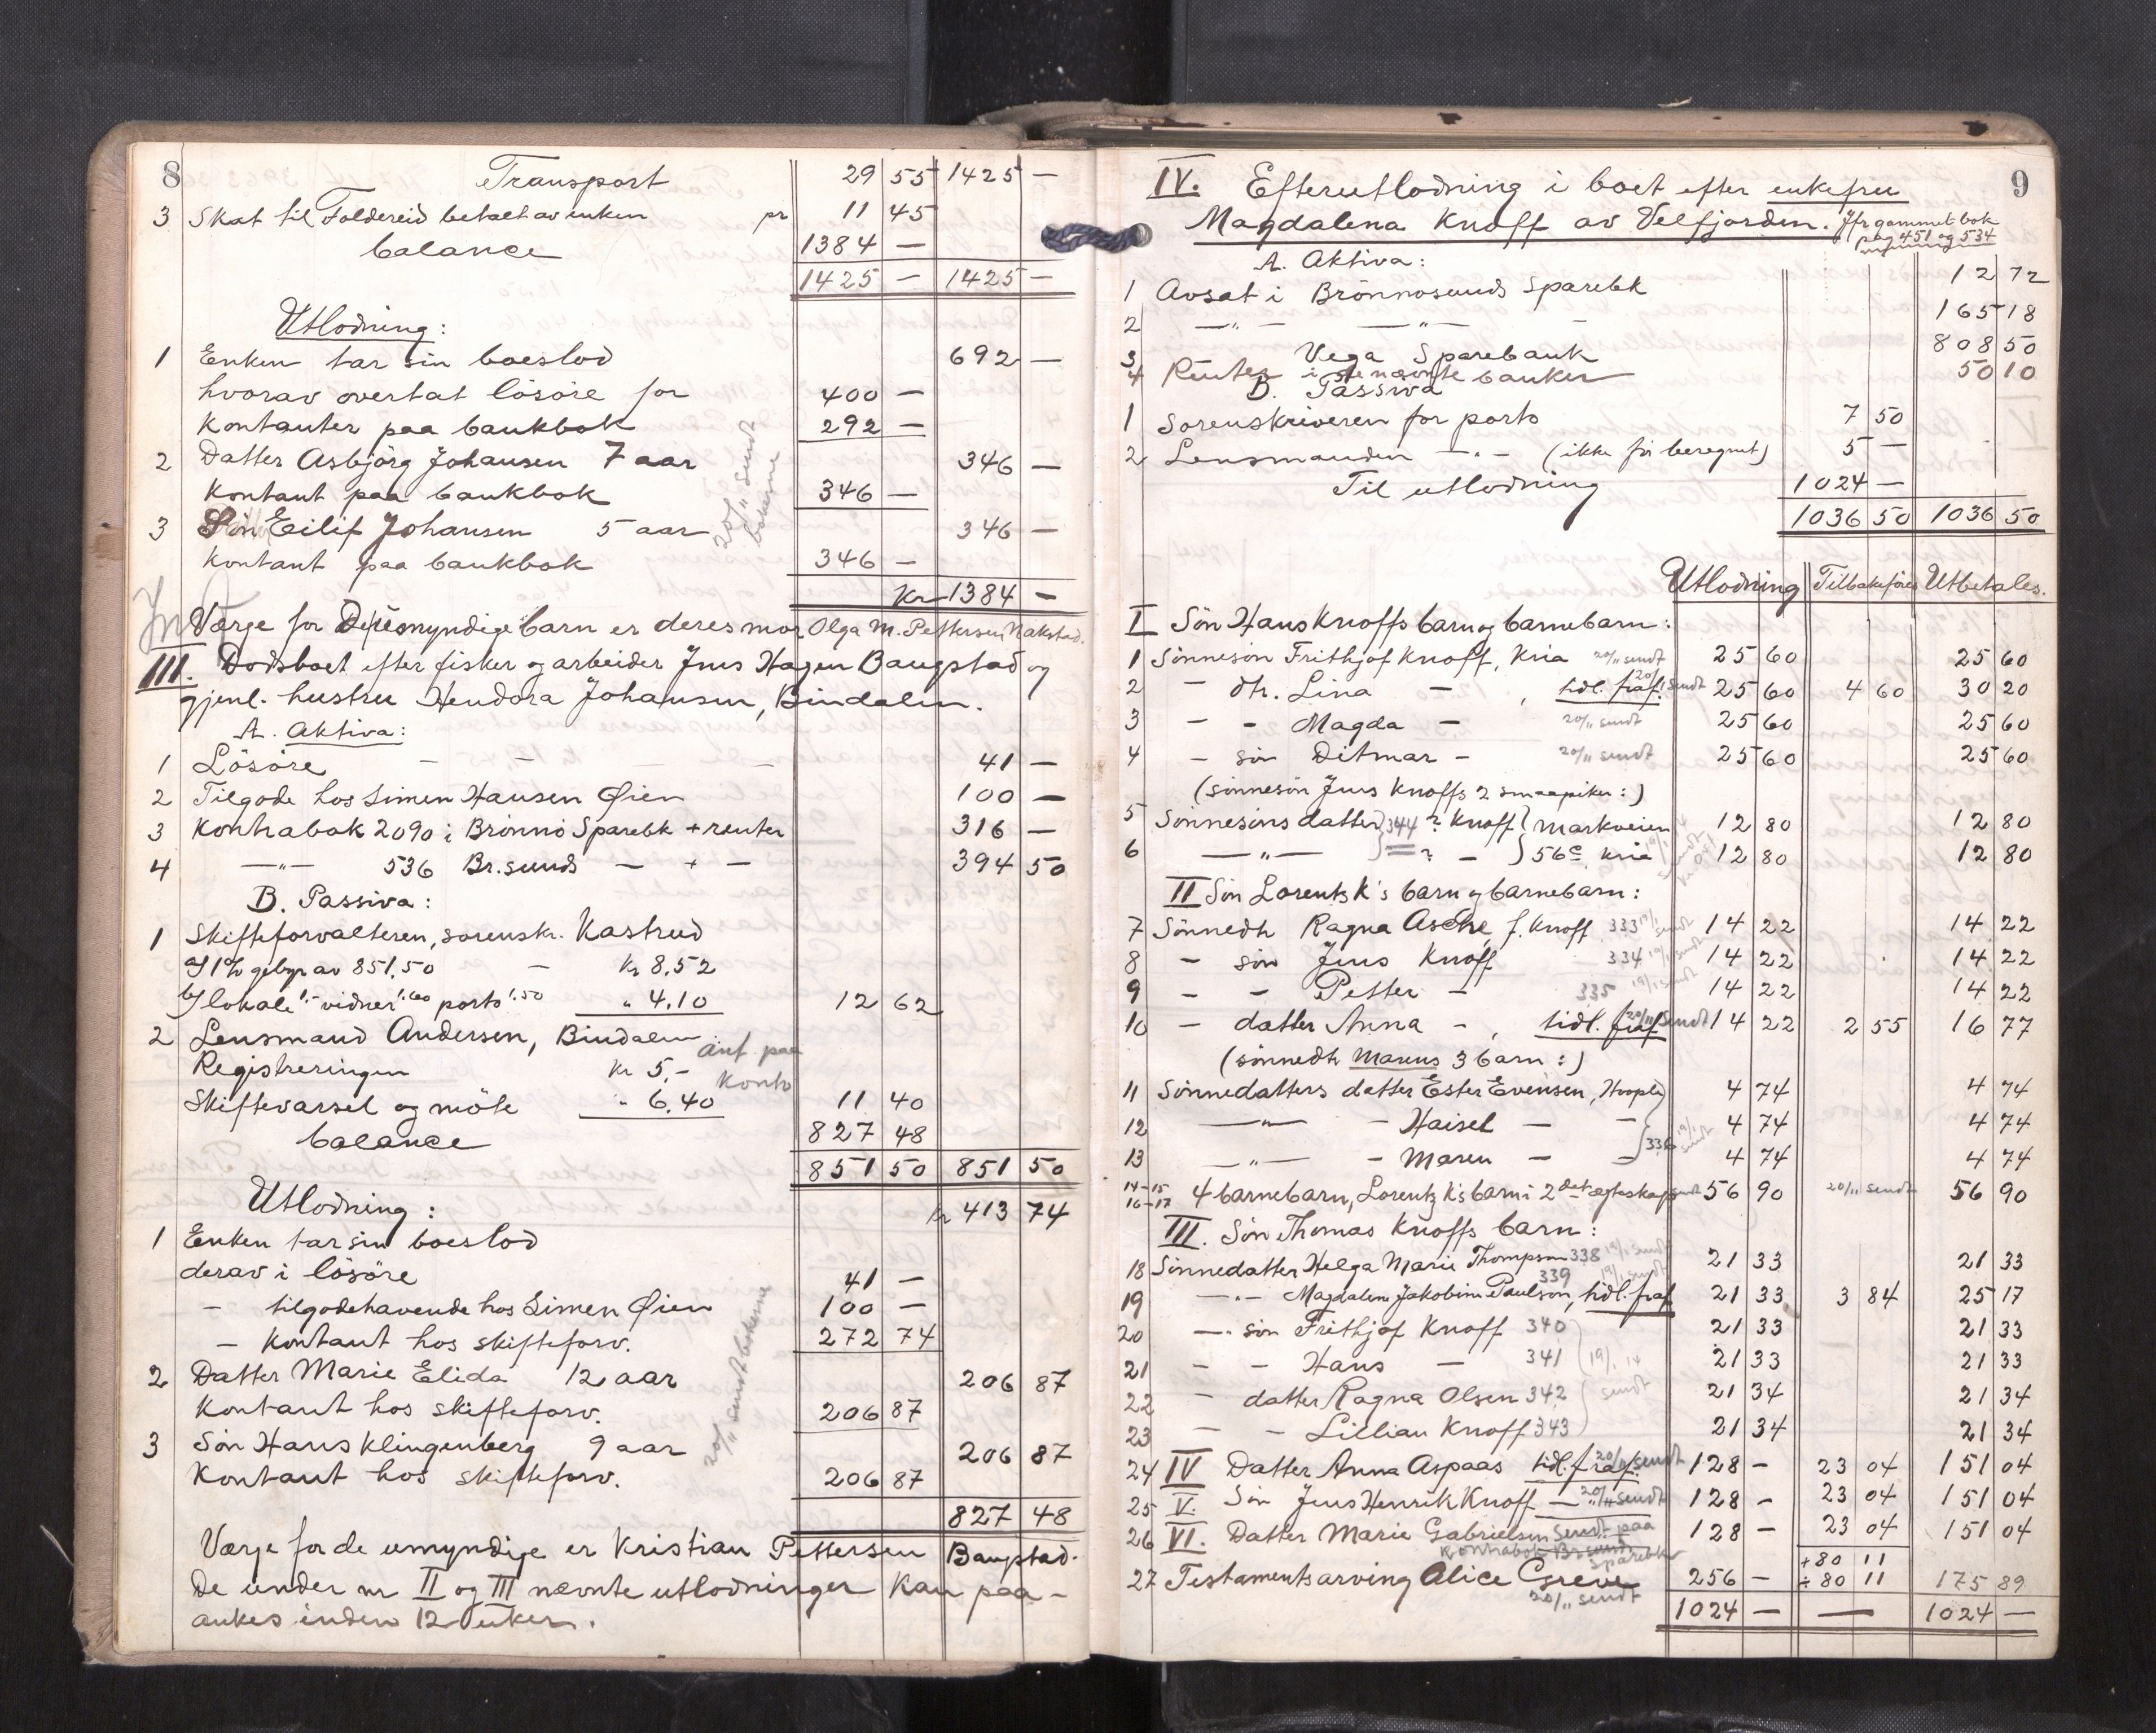 8 Transport 29 55 1425 —
3 Skat til Foldereid betalt av enken pr 11 45
balance 1384 —
1425 — 1425 —
Utlodning:
1 Enken tar sin boeslod 692 —
hvorav overtat lösöre for 400 —
Kontanter paa bankbok 292 —
2 Datter Asbjörg Johansen 7 aar 346 —
Kontant paa bankbok 346 —
3 Sön Eilif Johansen 5 aar 346 —
Kontant paa bankbok 346 —
20/11 sendt bökerne
Kr 1384 —
Værge for De umyndige barn er deres mor Olga M. Pettersen Nakstad.
III. Dödsboet efter fisker og arbeider Jens Hagen Baugstad og
gjenl. hustru Hendora Johansen, Bindalen.
A. Aktiva:
1 Lösöre — — — 41 —
2 Tilgode hos Simen Hansen Øien 100 —
3 Kontrabok 2090 i Brönnö Sparebk + renter 316 —
4 —"— 536 Br.sunds — + — 394 50
B. Passiva:
1 Skifteforvalteren, sorenskr. Kastrud
a/ 1% gebyr av 851,50 — Kr 8,52
b/ lokale 1.- vidner 1.60 porto 1.50 " 4.10 12 62
2 Lensmand Andersen, Bindalen
Registreringen Kr 5,-
anf. paa konto
Skiftevarsel og möte " 6,40 11 40
balance 827 48
851 50 851 50
Utlodning: Kr 413 74
1 Enken tar sin boeslod
derav i lösöre 41 —
— tilgodehavende hos Simen Øien 100 —
— Kontant hos skifteforv. 272 74
2 Datter Marie Elida 12 aar 206 87
Kontant hos skifteforv. 206 87
3 Sön Hans Klingenberg 9 aar 206 87
Kontant hos skifteforv. 206 87
20/11 sendt bökerne
827 48
Værge for de umyndige er Kristian Pettersen Baugstad.
De under nr II og III nævnte utlodninger kan paa-
ankes inden 12 uker.
IV. Efterutlodning i boet efter enkefru 9
Magdalena Knoff av Velfjorden. Jfr gammel bok
pag 451 og 534
A. Aktiva:
1 Avsat i Brönnösunds Sparebk 12 72
2 —"— —"— — 165 18
3 Vega Sparebank 808 50
4 Renter i de nævnte banker 50 10
B. Passiva
1 Sorenskriveren for porto 7 50
2 Lensmanden —"— (ikke för beregnet) 5 —
Til utlodning 1024 —
1036 50 1036 50
Utlodning Tilbakeföres Utbetales.
I Sön Hans Knoffs barn og barnebarn:
1 Sönnesön Frithjof Knoff, Kria 20/11 sendt 25 60 25 60
2 — dtr. Lina — , tidl. fraf. 20/11 sendt 25 60 4 60 30 20
3 — — Magda — 20/11 sendt 25 60 25 60
4 — sön Ditmar — 20/11 sendt 25 60 25 60
(sönnesön Jens Knoffs 2 smaapiker:)
5 Sönnesöns datter 344 ? Knoff Markveien 12 80 12 80
6 —"— ? — 56c Kria 12 80 12 80
II Sön Lorentz K's barn og barnebarn:
7 Sönnedtr Ragna Asche, f. Knoff 333 19/1 sendt 14 22 14 22
8 — sön Jens Knoff 334 19/1 sendt 14 22 14 22
9 — — Petter — 335 19/1 sendt 14 22 14 22
10 — datter Anna — , tidl. fraf. 20/11 sendt 14 22 2 55 16 77
(sönnedtr Marens 3 barn:)
11 Sönnedatters datter Ester Evensen, Hoople 4 74 4 74
12 —"— — Haisel — — 336 19/1 sendt 4 74 4 74
13 —"— — Maren — — 4 74 4 74
14-15 16-17 4 barnebarn, Lorentz K's barn i 2det egteskap 56 90 20/11 sendt 56 90
III. Sön Thomas Knoffs barn:
18 Sönnedatter Helga Marie Thompson 338 19/1 sendt 21 33 21 33
19 —"— Magdalene Jakobine Paulson, tidl. fraf. 339 19/1 sendt 21 33 3 84 25 17
20 —"— sön Frithjof Knoff 340 21 33 21 33
21 — — Hans — 341 19/1 14 21 33 21 33
22 — datter Ragna Olsen 342 sendt 21 34 21 34
23 — — Lillian Knoff 343 21 34 21 34
24 IV Datter Anna Aspaas tidl. fraf. 20/11 sendt 128 — 23 04 151 04
25 V. Sön Jens Henrik Knoff —"— 20/11 sendt 128 — 23 04 151 04
26 VI. Datter Marie Gabrielsen sendt paa 128 — 23 04 151 04
kontrabok Br.sunds Sparebk
+ 80 11
27 Testamentsarving Alice Greve 256 — ÷ 80 11 175 89
20/11 sendt
1024 — — 1024 —